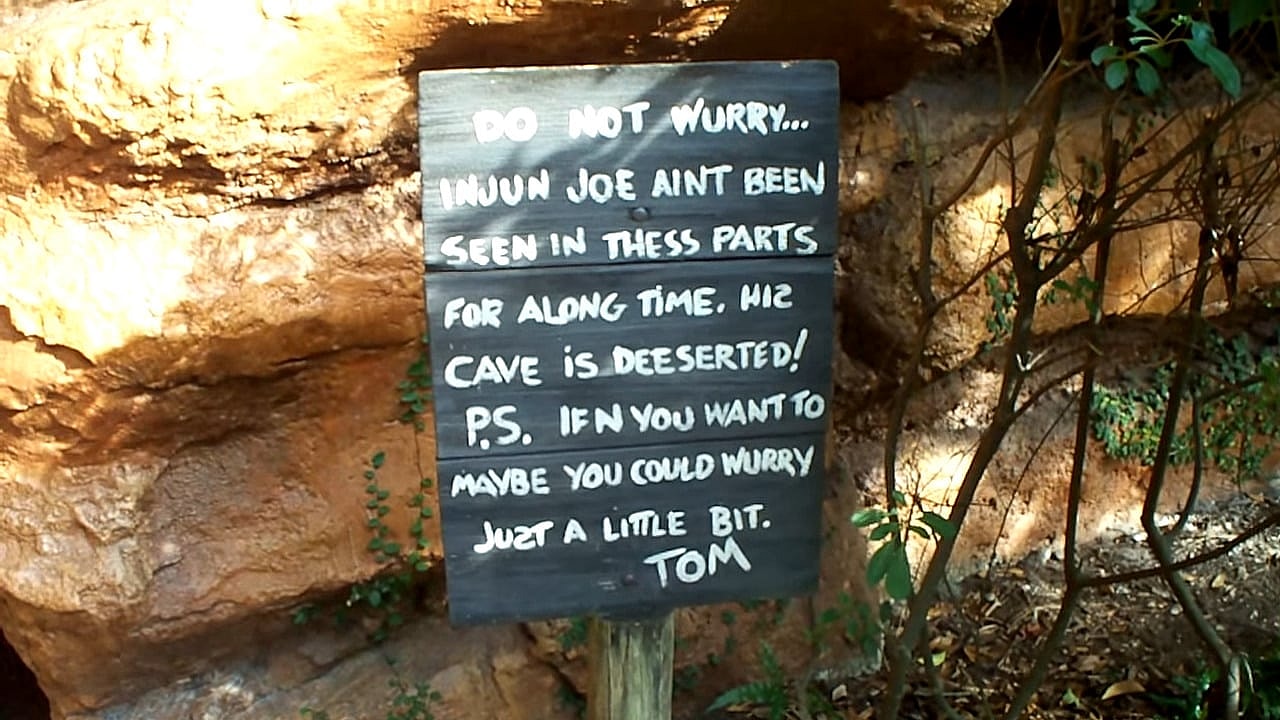 DO NOT WURRY...
INJUN JOE AINT BEEN
SEEN IN THESS PARTS
FOR ALONG TIME. HIZ
CAVE iS DEESERTED!
P.S. IFN YOU WANT TO
MAYBE YOU COULD WURRY
JUZT A LITTLE BIT.
TOM